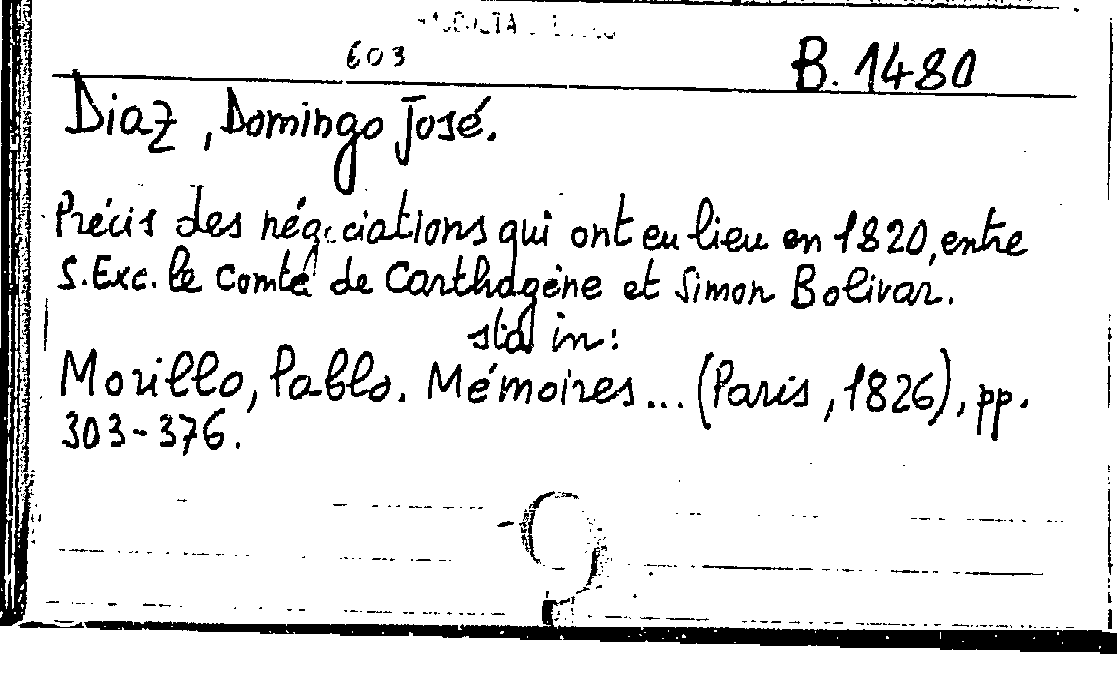 603
B. 1480
Diaz, Domingo José.
Précis des négociations qui ont eu lieu en 1820, entre
S. Exc. le Comte de Carthagène et Simon Bolivar.
sta in:
Morillo, Pablo. Mémoires... (Paris, 1826), pp.
303-376.